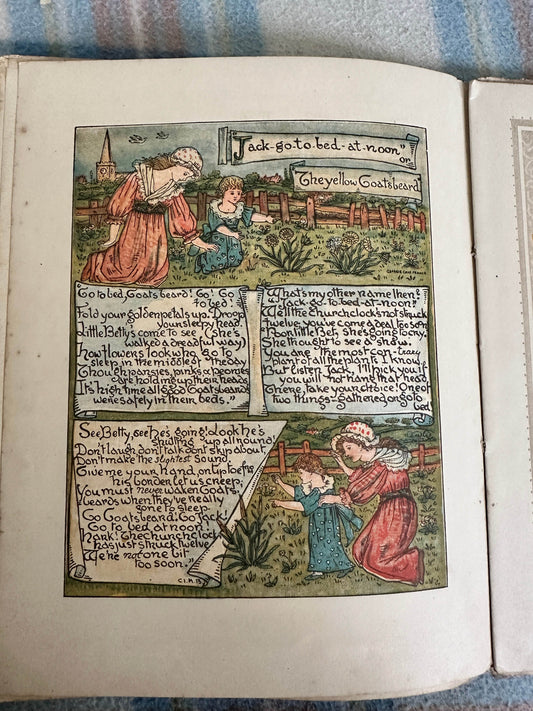 "Jack-go-to-bed-at-noon"
or
The yellow Goatsbeard
"Go to bed, Goatsbeard! Go! Go
to bed!
Fold your gold petals up. Droop
your sleepy head.
Little Betty's come to see (she's
walked a dreadful way)
How flowers look who go to
sleep in the middle of the day
Though pansies, pinks & peonies
are holding up their heads,
It's high time all good Goatsbeards
were safely in their beds."
What's my other name then?
"Jack-go-to-bed-at-noon!"
Well the church clock's not struck
twelve, you've come a deal too soon
Poor little Bet, she's going to cry.
She thought to see a show.
You are the most con-trary
plant of all the plants I know!
But listen Jack, I'll pick you if
you will not hang that head
There, take your choice! One of
two things—gathered or go to
bed
See Betty, see he's going! do look he's
shutting up all round!
Don't laugh don't talk don't skip about,
Don't make the slightest sound.
Give me your hand, on tip toe from
his border let us creep;
You must never waken Goats-
beards when they've really
gone to sleep
Go Goatsbeard; Go Jack!
Go to bed at noon!
Hark! The church clock
has just struck twelve
We're not one bit
too soon."